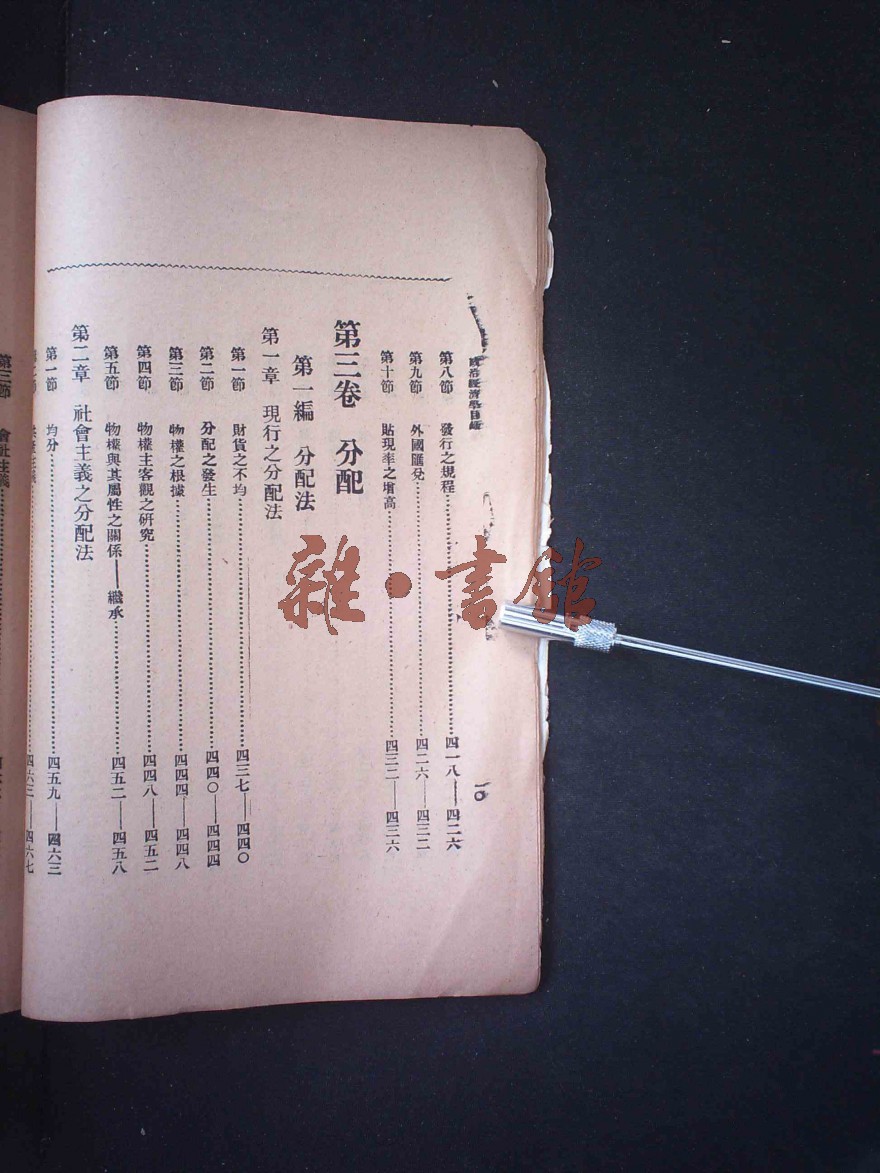 政治經濟學目錄
一〇
第八節 發行之規程……四一八——四二六
第九節 外國匯兌……四二六——四三二
第十節 貼現率之增高……四三二——四三六
第三卷 分配
第一編 分配法
第一章 現行之分配法
第一節 財貨之不均……四三七——四四〇
第二節 分配之發生……四四〇——四四四
第三節 物權之根據……四四四——四四八
第四節 物權主客觀之研究……四四八——四五二
第五節 物權與其屬性之關係——繼承……四五二——四五八
第二章 社會主義之分配法
第一節 均分……四五九——四六三
四六三——四六七
第三節 會社主義
雜·書館